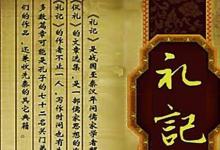 《礼记》是战国至秦汉年间儒家学者解
《仪礼》的文章选集，是一部儒家思想的
《礼记》的作者不止一人，写作时间也有
多数篇章可能是孔子的七十二名弟子
们的作品，还兼收先秦的其它典籍。
礼記